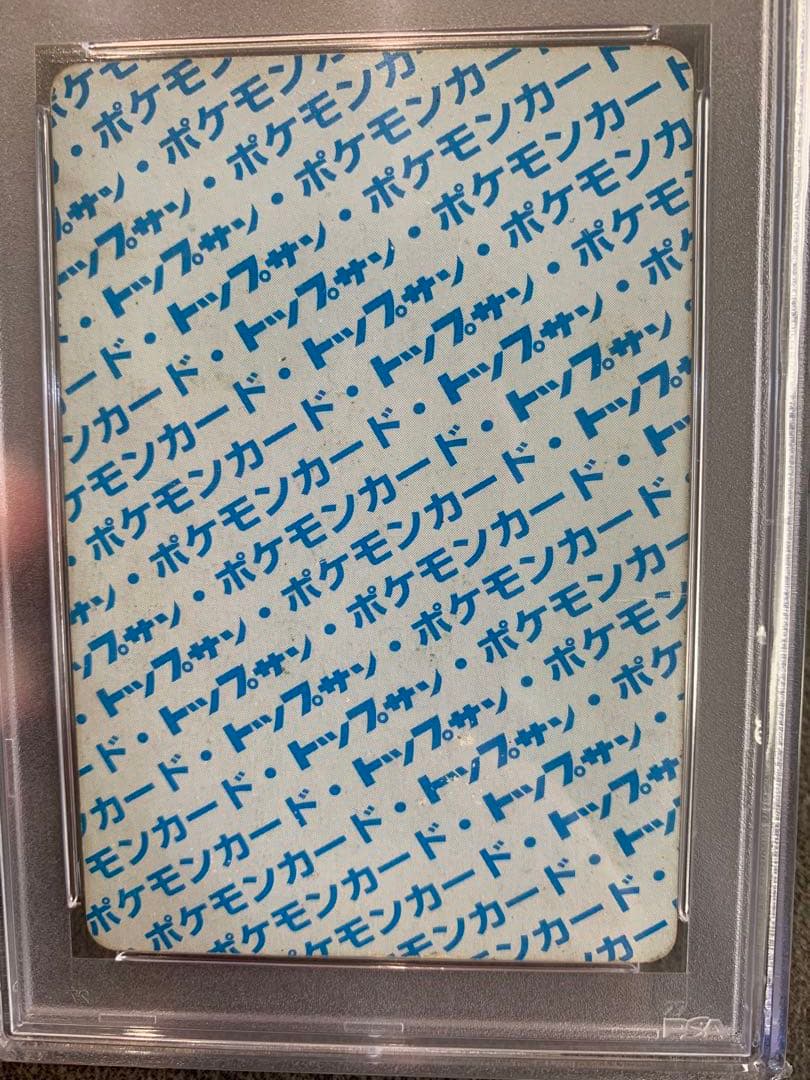 ケモ
・ポケモン
サン・ポケモン
ップサン・ポケモンカ
・トップサン・ポケモンカー
ード・トップサン・ポケモンカー
ンカード・トップサン・ポケモンカード
ケモンカード・トップサン・ポケモンカ
・ポケモンカード・トップサン・ポケモ
サン・ポケモンカード・トップサン・ポケ
ップサン・ポケモンカード・トップサン・
・トップサン・ポケモンカード・トップ
ード・トップサン・ポケモンカード・トッ
カード・トップサン・ポケモンカード・
モンカード・トップサン・ポケモンカー
ポケモンカード・トップサン・ポケモン
ポケモンカード・トップサン・ポケ
ケモンカード・トップサン・
ケモンカード・トップサ
モンカード・トッ
ンカード・
カー
PSA